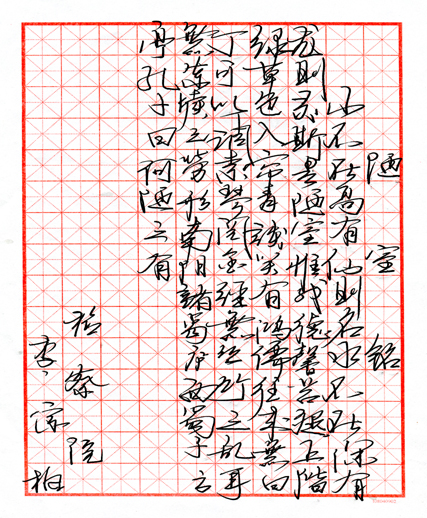 陋室銘
山不在高有仙則名水不在深有
龙則灵斯是陋室惟吾德馨苔痕上階
绿草色入帘青談笑有鴻儒往来無白
丁可以調素琴閱金经無丝竹之乱耳
無案牍之劳形南阳諸葛庐西蜀子云
亭孔子曰何陋之有
检察院
李